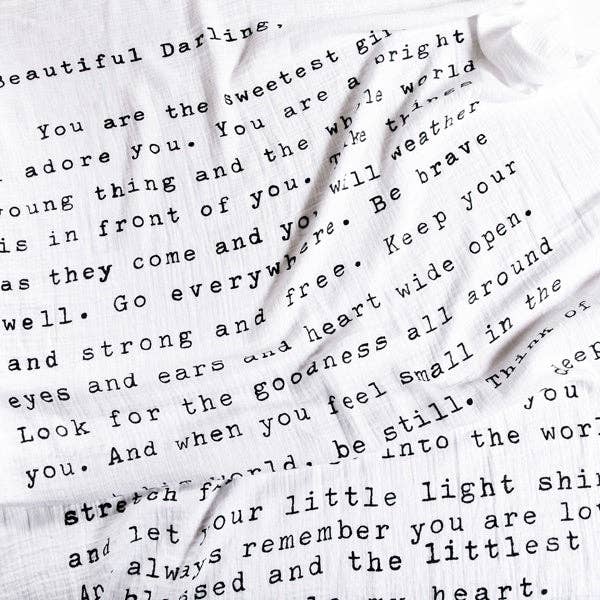 Beautiful Darling,
You are the sweetest
adore you. You are a bright
young thing and the whole world
is in front of you. Take things
as they come and you will weather
well. Go everywhere. Be brave
and strong and free. Keep your
eyes and ears and heart wide open.
Look for the goodness all around
you. And when you feel small in the
world, be still. Think of
you deep
stretch into the
and let your little light
always remember you are
and the littlest
heart.